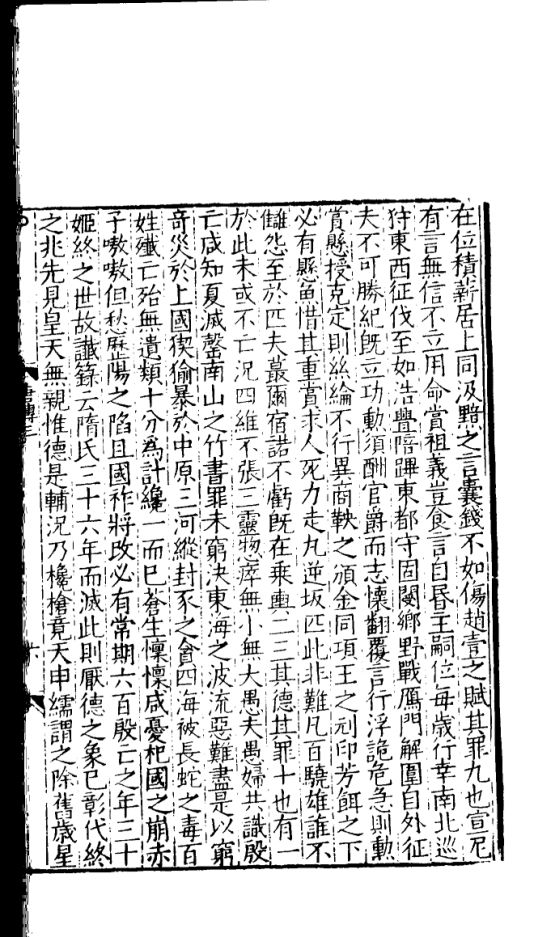 在位積薪居上同汲黯之言囊錢不如傷趙壹之賦其罪九也宣尼
有言無信不立用命賞祖義豈食言自昬主嗣位每歲行幸南北巡
狩東西征伐至如浩亹陪蹕東都守固閿鄉野戰鴈門解圍自外征
夫不可勝紀旣立功勳須酬官爵而志懷翻覆言行浮詭危急則勳
賞懸授克定則絲綸不行異商鞅之頒金同項王之刓印芳餌之下
必有懸魚惜其重賞求人死力走丸逆坂匹此非難凡百驍雄誰不
讎怨至於匹夫蕞爾宿諾不虧旣在乘輿二三其德其罪十也有一
於此未或不亡況四維不張三靈惣瘁無小無大愚夫愚婦共識殷
亡咸知夏滅罄南山之竹書罪未窮決東海之波流惡難盡是以窮
奇災於上國猰㺄暴於中原三河縱封豕之貪四海被長蛇之毒百
姓殲亡殆無遺類十分爲計纔一而已蒼生懍懍咸憂杞國之崩赤
子嗷嗷但愁歷陽之陷且國祚將改必有常期六百殷亡之年三十
姬終之世故讖籙云隋氏三十六年而滅此則厭德之象已彰代終
之兆先見皇天無親惟德是輔況乃欃槍竟天申繻謂之除舊歲星
六